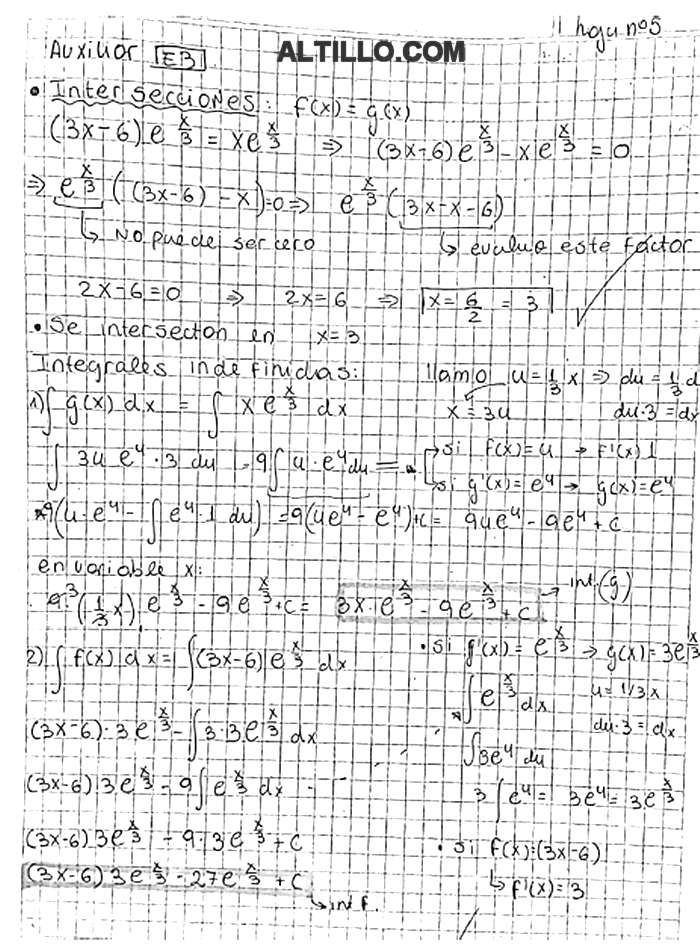 1 hoja nº5
ALTILLO.COM
Auxiliar E3
• Intersecciones: f(x) = g(x)
(3x-6) e^(x/3) = x e^(x/3) ⇒ (3x-6) e^(x/3) - x e^(x/3) = 0
⇒ e^(x/3) ((3x-6) - x) = 0 ⇒ e^(x/3) (3x-x-6)
↳ No puede ser cero ↳ evaluo este factor
2x-6=0 ⇒ 2x=6 ⇒ x = 6/2 = 3
• Se intersectan en x=3
Integrales indefinidas: llamo u = 1/3 x ⇒ du = 1/3 d
1) ∫ g(x) dx = ∫ x e^(x/3) dx x = 3u du·3 = dx
∫ 3u e^u · 3 du = 9 ∫ u · e^u du = * si f(x) = u → f'(x) 1
si g'(x) = e^u → g(x) = e^u
*9(u·e^u - ∫ e^u · 1 du) = 9(ue^u - e^u) + c = 9ue^u - 9e^u + c
en variable x:
9·³(1/3 x) e^(x/3) - 9e^(x/3) + c = 3x·e^(x/3) - 9e^(x/3) + c → int.(g)
2) ∫ f(x) dx = ∫ (3x-6) e^(x/3) dx • si g'(x) = e^(x/3) → g(x) = 3e^(x/3)
* ∫ e^(x/3) dx u = 1/3 x
(3x-6)·3e^(x/3) - ∫ 3·3e^(x/3) dx du·3 = dx
∫ 3e^u du
(3x-6) 3e^(x/3) - 9 ∫ e^(x/3) dx 3 ∫ e^u = 3e^u = 3e^(x/3)
(3x-6) 3e^(x/3) - 9·3e^(x/3) + c • si f(x) = (3x-6)
(3x-6) 3e^(x/3) - 27e^(x/3) + c ↳ f'(x) = 3
↳ int f.